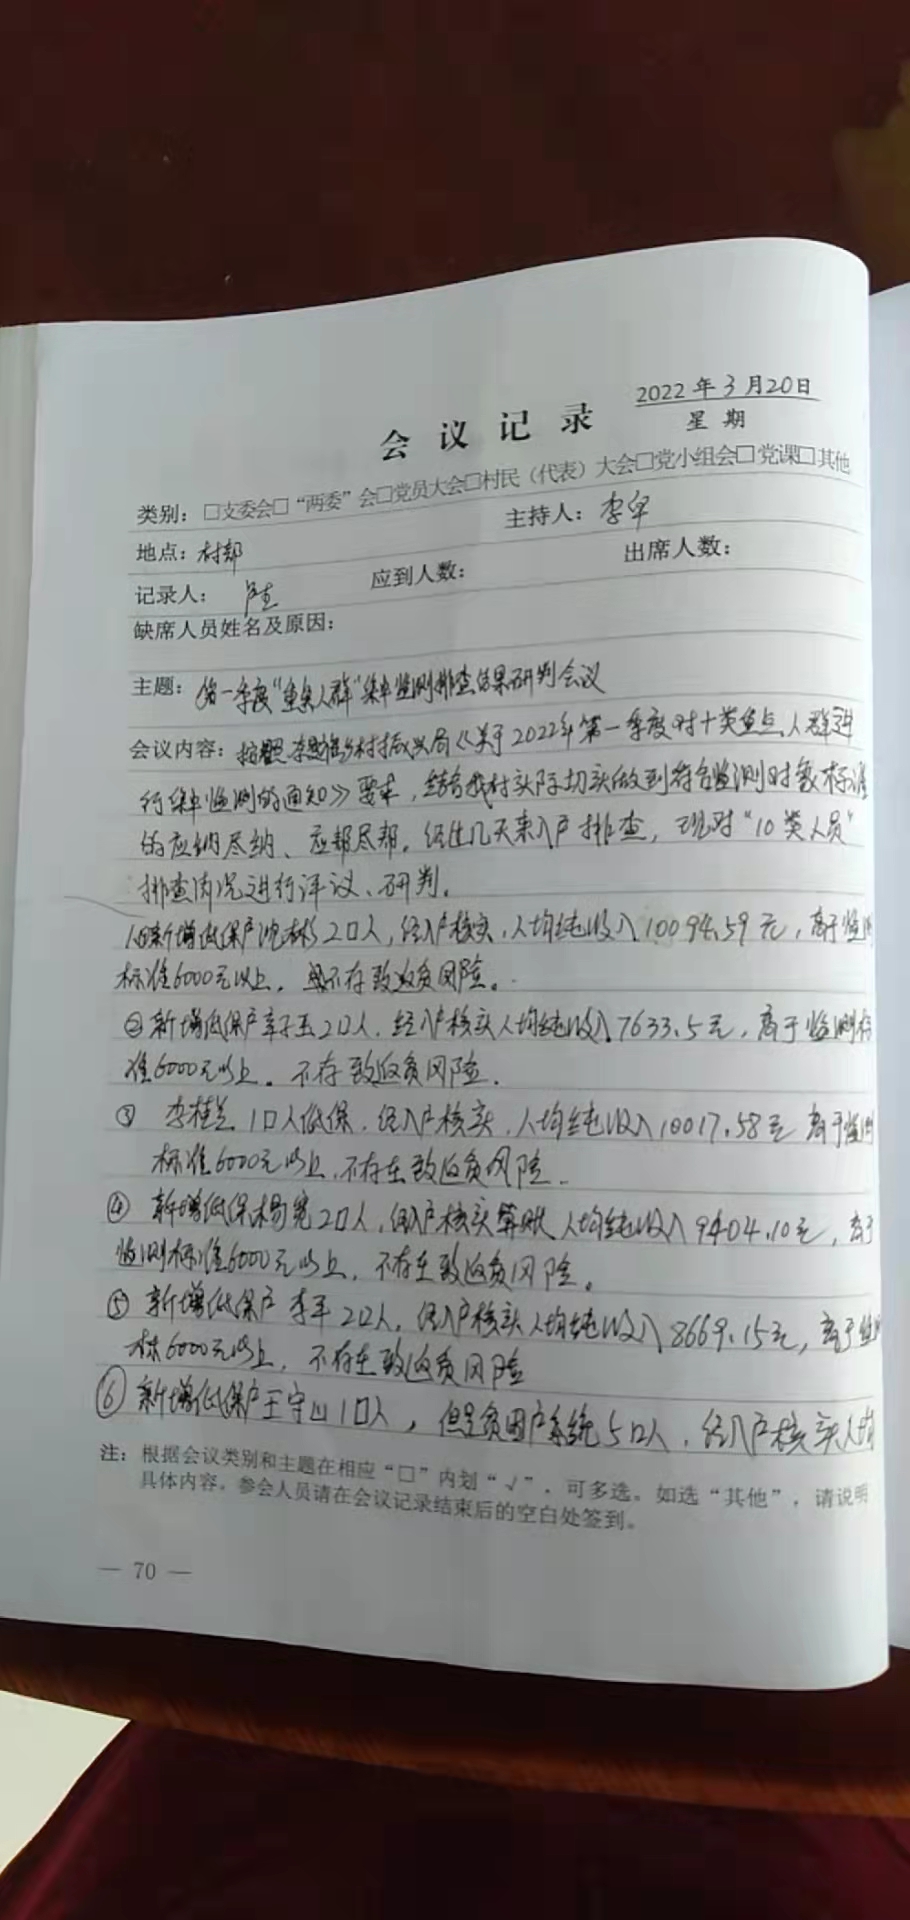 2022年3月20日
会议记录
星期
类别：□支委会□“两委”会□党员大会□村民（代表）大会□党小组会□党课□其他
地点：村部 主持人：李早
记录人： 应到人数： 出席人数：
缺席人员姓名及原因：
主题：第一季度“重点人群”集中监测排查结果研判会议
会议内容：按照李 乡村振兴局《关于2022年第一季度对十类重点人群进
行集中监测的通知》要求，结合我村实际切实做到符合监测对象标准
的应纳尽纳、应帮尽帮。经过几天来入户排查，现对“10类人员”
排查情况进行评议、研判。
1.①新增低保户沈 2口人，经入户核实，人均纯收入10094.59元，高于监测
标准6000元以上，不存致返贫风险。
②新增低保户 2口人，经入户核实人均纯收入7633.5元，高于监测标
准6000元以上。不存致返贫风险。
③ 李桂兰1口人低保，经入户核实，人均纯收入10017.58元 高于监测
标准6000元以上，不存在致返贫风险.
④ 新增低保 2口人，经入户核实算账 人均纯收入9404.10元，高于
监测标准6000元以上，不存在致返贫风险。
⑤ 新增低保户 李平2口人，经入户核实人均纯收入8669.15元，高于监
标6000元以上，不存在致返贫风险
⑥ 新增低保户王守山1口人，但是贫困户系统5口人，经入户核实人均
注：根据会议类别和主题在相应“□”内划“√”，可多选。如选“其他”，请说明
具体内容。参会人员请在会议记录结束后的空白处签到。
— 70 —